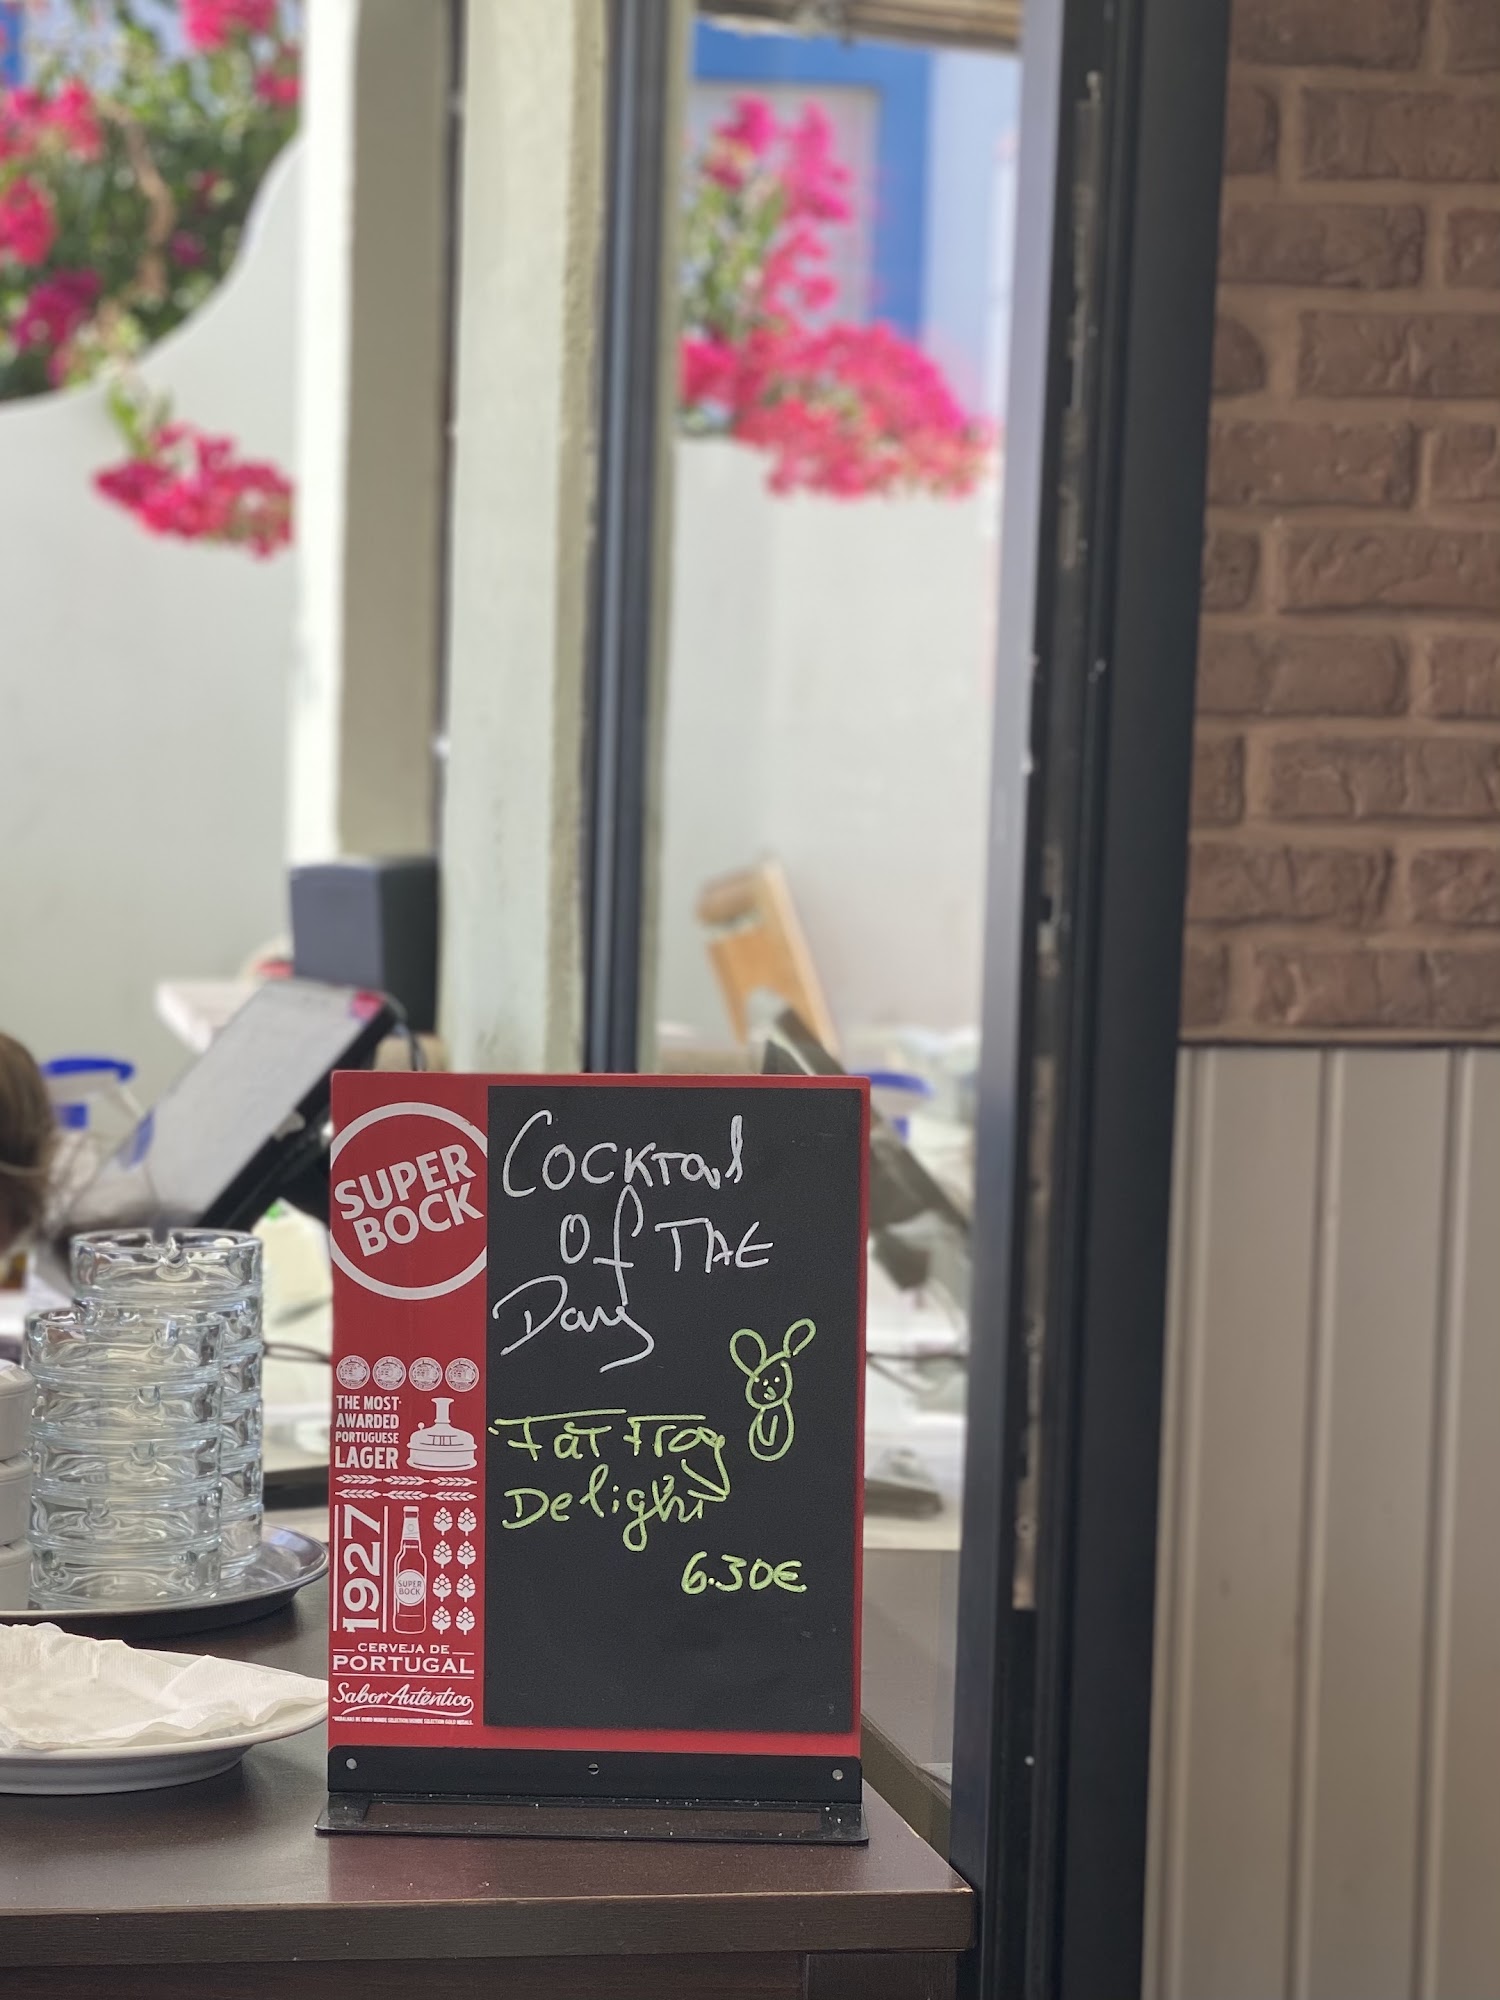 SUPER
BOCK
THE MOST
AWARDED
PORTUGUESE
LAGER
1927
SUPER
BOCK
CERVEJA DE
PORTUGAL
Sabor Autêntico
Cocktail
Of THE
Day
FaT Frog
Delight
6.30€